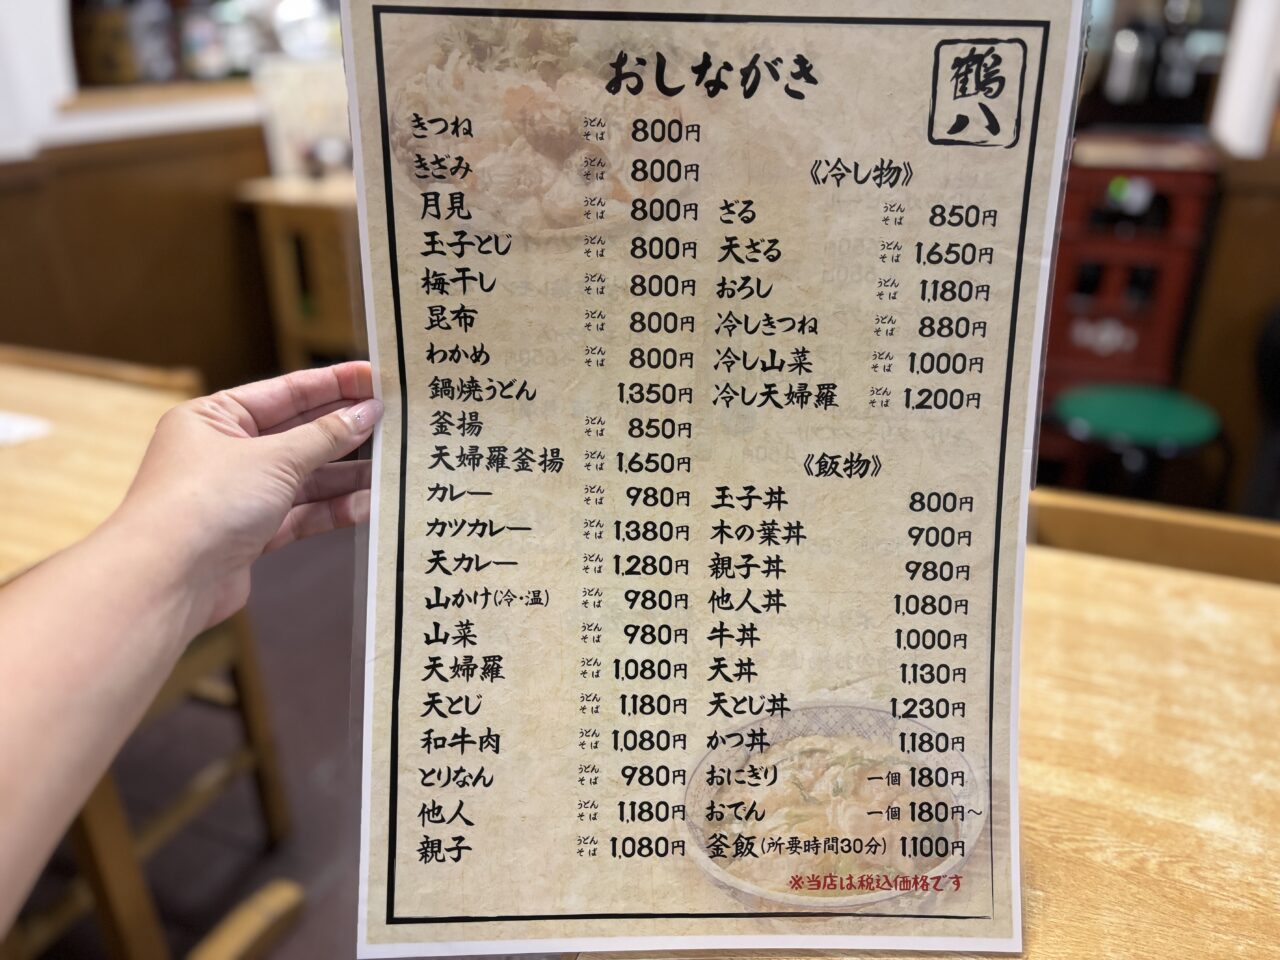 おしながき
鶴八
きつね うどん そば 800円
きざみ うどん そば 800円
月見 うどん そば 800円
玉子とじ うどん そば 800円
梅干し うどん そば 800円
昆布 うどん そば 800円
わかめ うどん そば 800円
鍋焼うどん 1,350円
釜揚 うどん そば 850円
天婦羅釜揚 うどん そば 1,650円
カレー うどん そば 980円
カツカレー うどん そば 1,380円
天カレー うどん そば 1,280円
山かけ(冷・温) うどん そば 980円
山菜 うどん そば 980円
天婦羅 うどん そば 1,080円
天とじ うどん そば 1,180円
和牛肉 うどん そば 1,080円
とりなん うどん そば 980円
他人 うどん そば 1,180円
親子 うどん そば 1,080円
《冷し物》
ざる うどん そば 850円
天ざる うどん そば 1,650円
おろし うどん そば 1,180円
冷しきつね うどん そば 880円
冷し山菜 うどん そば 1,000円
冷し天婦羅 うどん そば 1,200円
《飯物》
玉子丼 800円
木の葉丼 900円
親子丼 980円
他人丼 1,080円
牛丼 1,000円
天丼 1,130円
天とじ丼 1,230円
かつ丼 1,180円
おにぎり 一個 180円
おでん 一個 180円〜
釜飯(所要時間30分) 1,100円
※当店は税込価格です